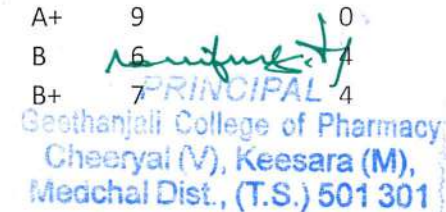 A+ 9 0
B 6 4
B+ 7 4
PRINCIPAL
Geethanjali College of Pharmacy
Cheeryal (V), Keesara (M),
Medchal Dist., (T.S.) 501 301